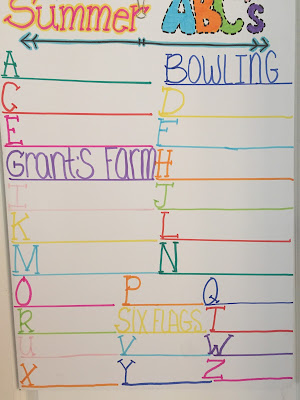 Summer ABC's
A BOWLING
C D
E F
Grant's Farm H
I J
K L
M N
O P Q
R SIX FLAGS T
U V W
X Y Z